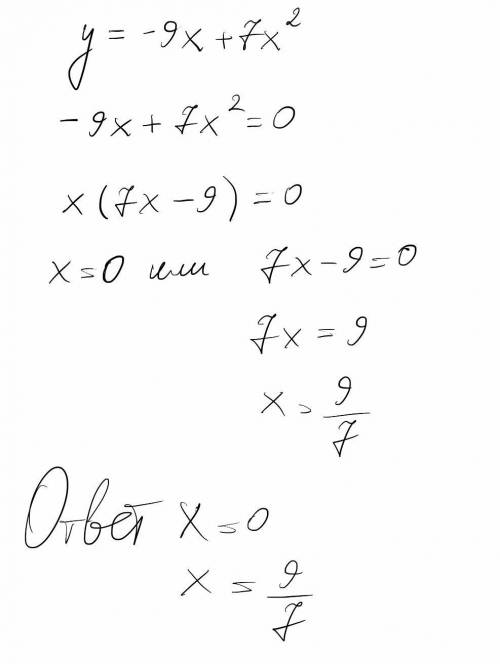 y = -9x + 7x²
-9x + 7x² = 0
x (7x - 9) = 0
x = 0 или 7x - 9 = 0
7x = 9
x = 9/7
Ответ x = 0
x = 9/7